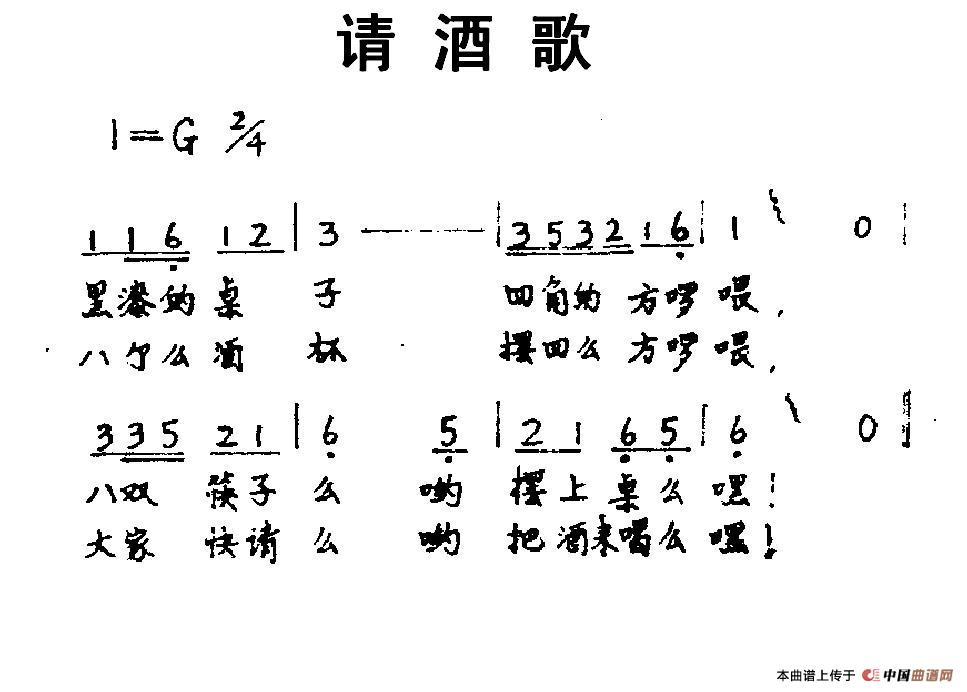 请酒歌
1=G 2/4
1 1 6̣ 1 2 | 3 — | 3 5 3 2 1 6̣ | 1 0 |
黑漆的桌 子 四角的 方啰喂,
八个么酒 杯 摆四么 方啰喂,
3 3 5 2 1 | 6̣ 5̣ | 2 1 6̣ 5̣ | 6̣ 0 ‖
八双 筷子 么 哟 摆上桌么嘿!
大家 快请 么 哟 把酒来喝么嘿!
本曲谱上传于 中国曲谱网